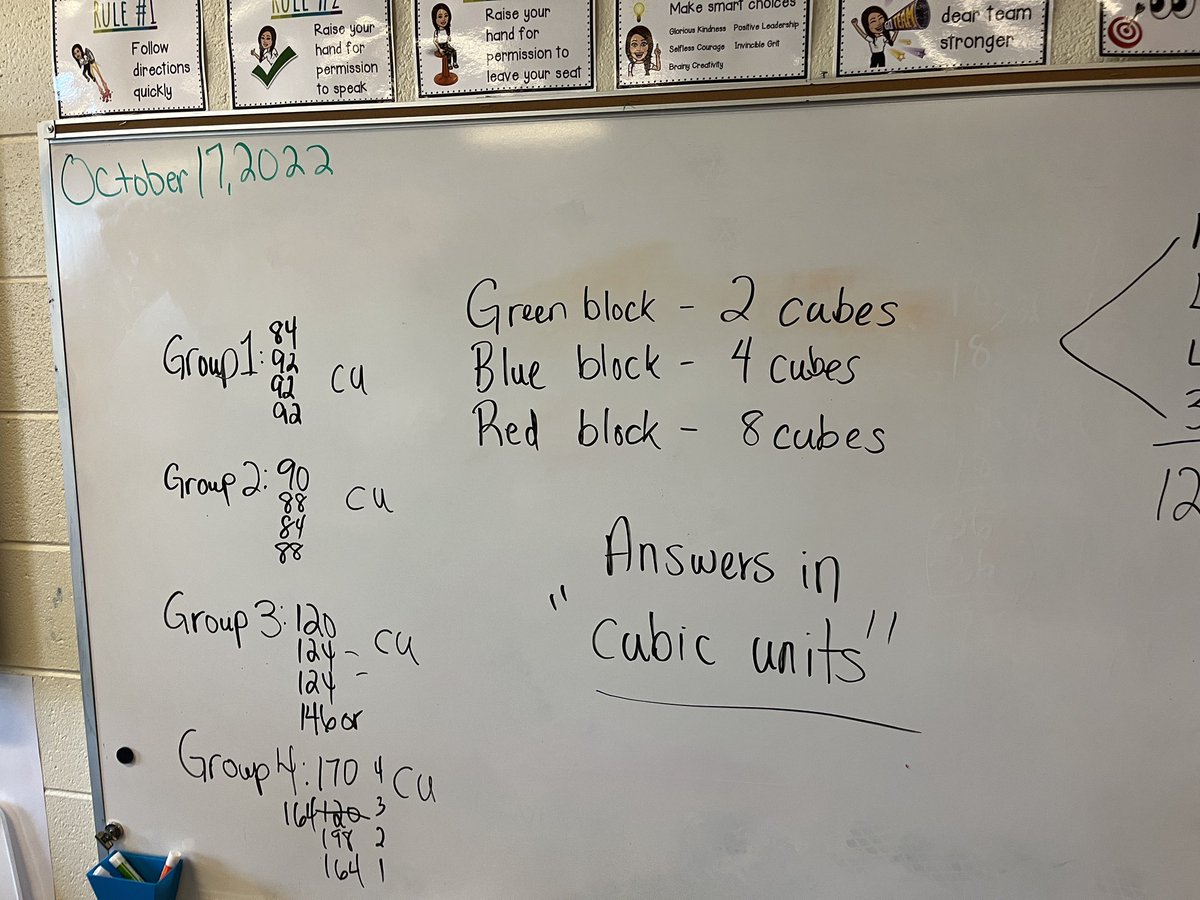 RULE #1
Follow
directions
quickly
RULE #2
Raise your
hand for
permission
to speak
Raise your
hand for
permission to
leave your seat
Make smart choices
Glorious Kindness Positive Leadership
Selfless Courage Invincible Grit
Brainy Creativity
TEAM
dear team
stronger
October 17, 2022
Green block - 2 cubes
Blue block - 4 cubes
Red block - 8 cubes
Group 1: 84
92
92
92
CU
Group 2: 90
88
84
88
CU
Group 3: 120
124 -
124 -
146 or
CU
Group 4: 170 4
164 120 3
198 2
164 1
CU
Answers in
"cubic units"
18
12